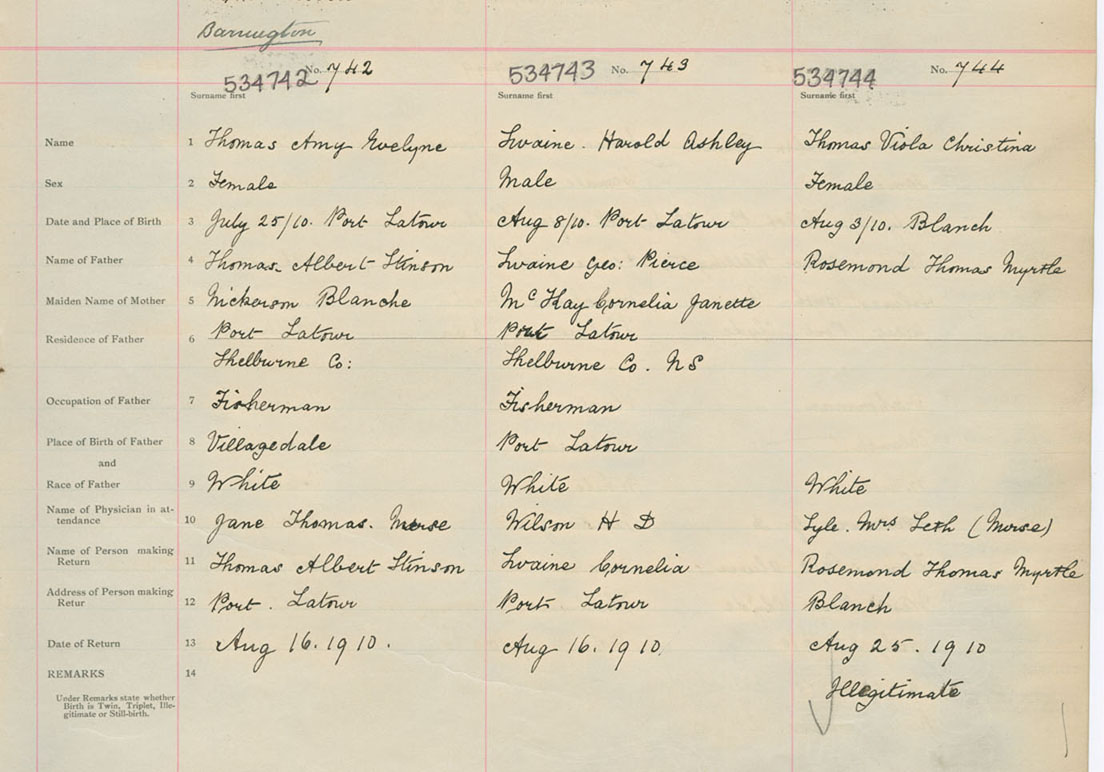 Barrington
534742 No. 742
534743 No. 743
534744 No. 744
Surname first
Surname first
Surname first
Name 1 Thomas Amy Evelyne
Swaine. Harold Ashley
Thomas Viola Christina
Sex 2 Female
Male
Female
Date and Place of Birth 3 July 25/10. Port Latour
Aug 8/10. Port Latour
Aug 3/10. Blanch
Name of Father 4 Thomas. Albert Stinson
Swaine Geo: Pierce
Rosemond Thomas Myrtle
Maiden Name of Mother 5 Nickerson Blanche
McKay Cornelia Janette
Residence of Father 6 Port Latour
Shelburne Co:
Port Latour
Shelburne Co. NS
Occupation of Father 7 Fisherman
Fisherman
Place of Birth of Father 8 Villagedale
Port Latour
and
Race of Father 9 White
White
White
Name of Physician in at-
tendance 10 Jane Thomas. Nurse
Wilson H D
Lyle. Mrs Seth (Nurse)
Name of Person making
Return 11 Thomas Albert Stinson
Swaine Cornelia
Rosemond Thomas Myrtle
Address of Person making
Retur 12 Port. Latour
Port. Latour
Blanch
Date of Return 13 Aug 16. 1910.
Aug 16. 1910.
Aug 25. 1910
REMARKS 14
Illegitimate
Under Remarks state whether
Birth is Twin, Triplet, Ille-
gitimate or Still-birth.